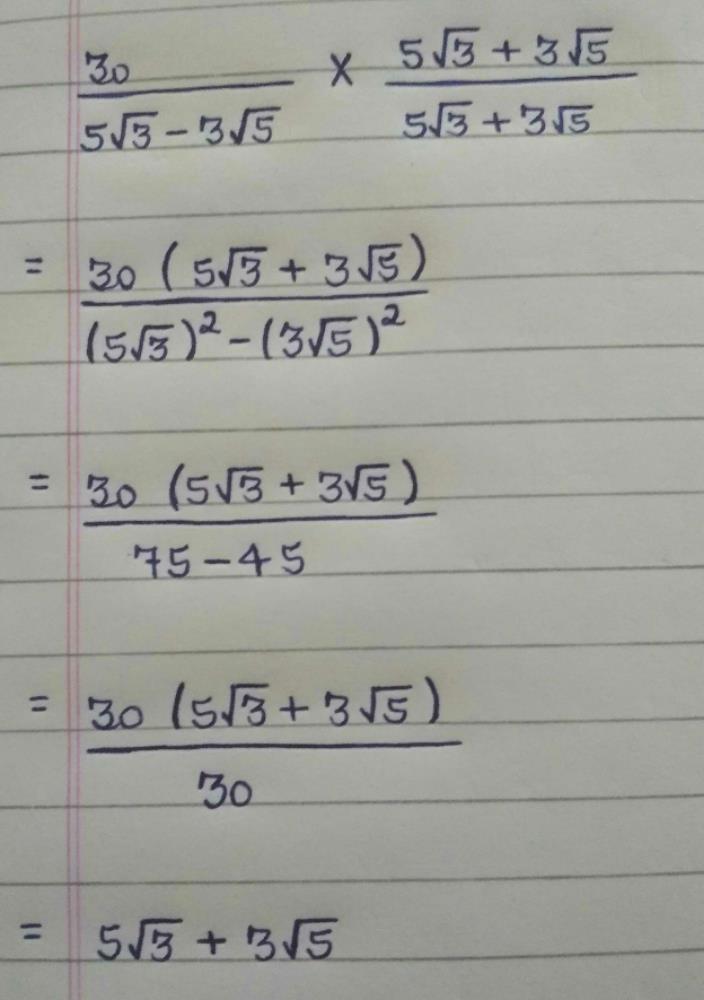 30/(5√3 − 3√5) × (5√3 + 3√5)/(5√3 + 3√5)
= 30 (5√3 + 3√5)/((5√3)² − (3√5)²)
= 30 (5√3 + 3√5)/(75 − 45)
= 30 (5√3 + 3√5)/30
= 5√3 + 3√5